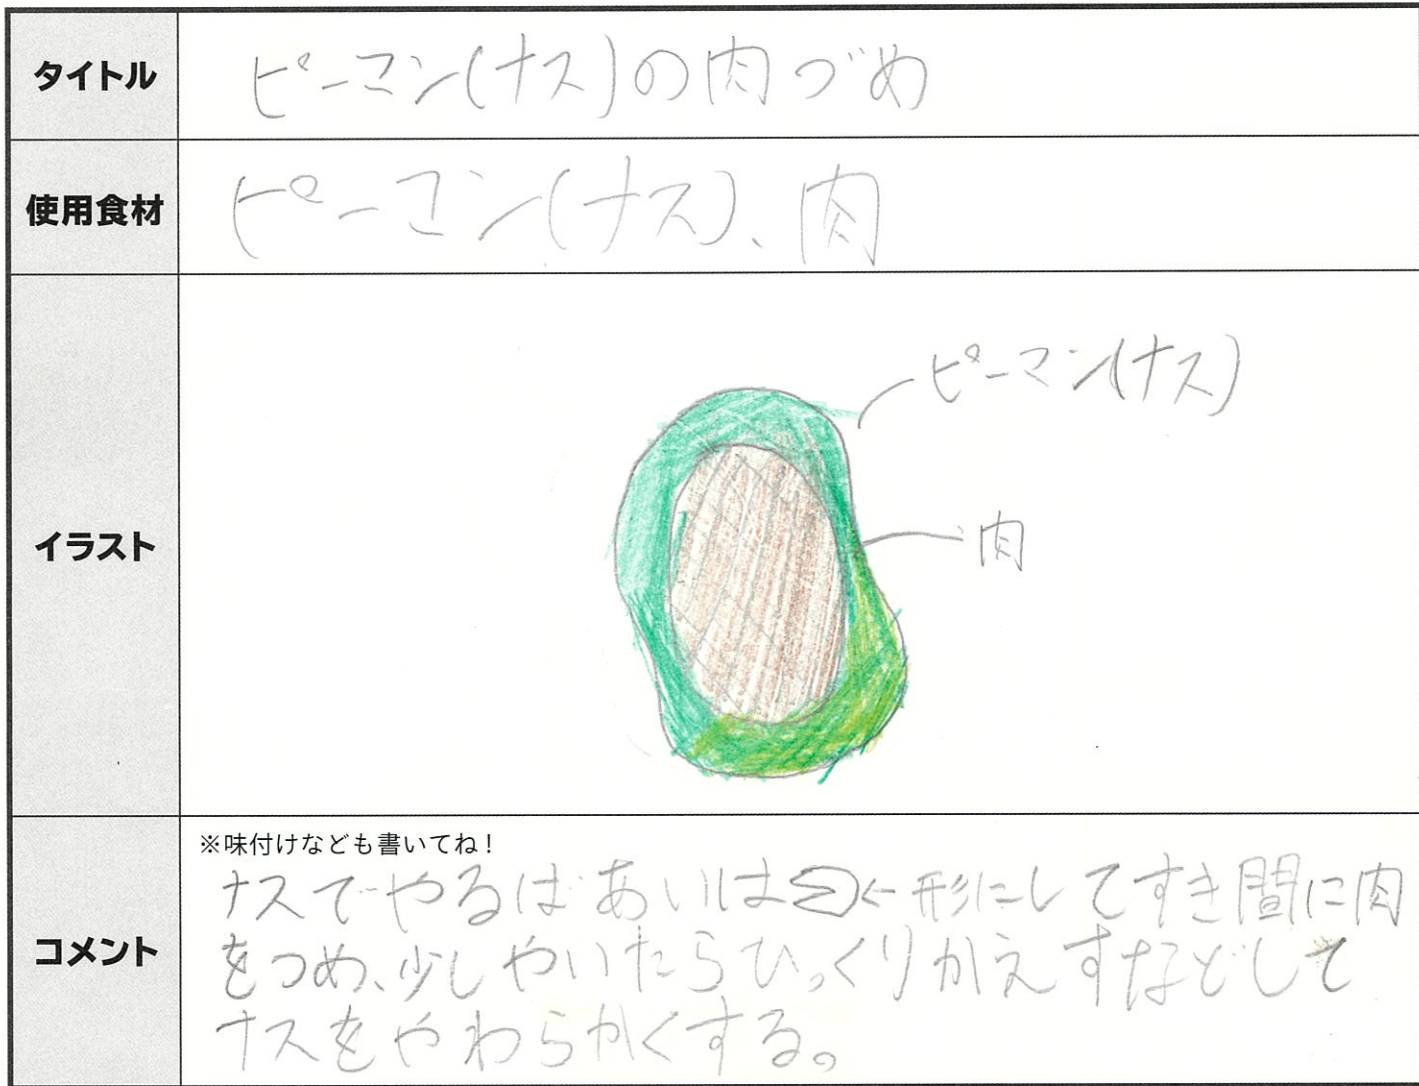 タイトル
ピーマン(ナス)の肉づめ
使用食材
ピーマン(ナス)、肉
イラスト
ピーマン(ナス)
肉
コメント
※味付けなども書いてね!
ナスでやるばあいは←形にしてすき間に肉
をつめ、少しやいたらひっくりかえすなどして
ナスをやわらかくする。